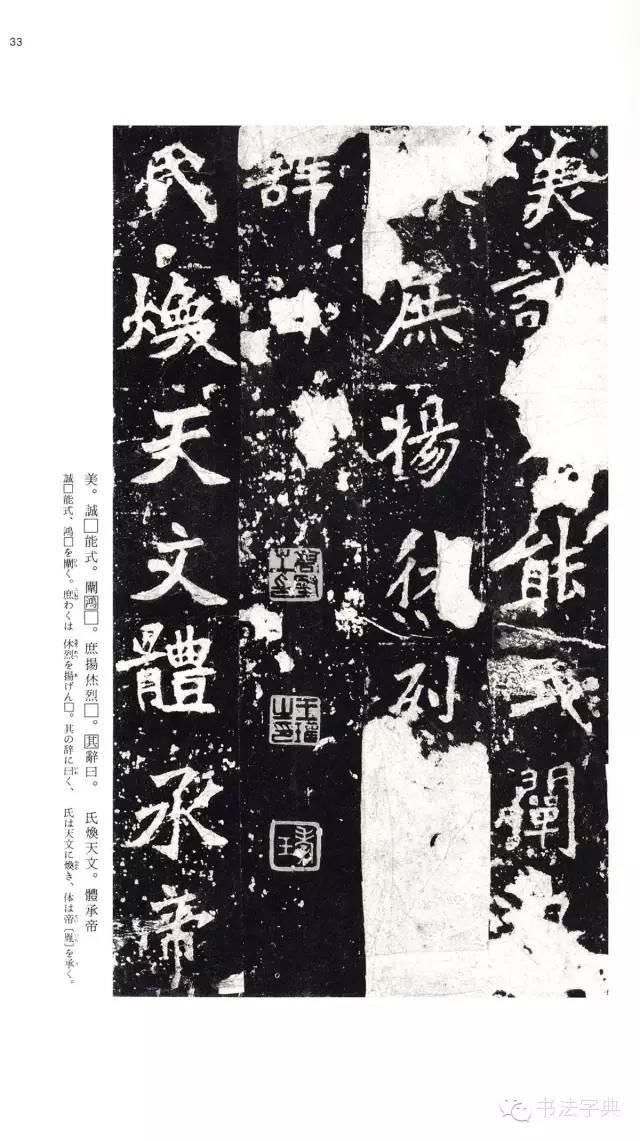 33
美
能式闡
庶揚烋烈
辞曰
氏煥天文體承帝
美。誠□能式。闡鴻□。庶揚烋烈□。其辭曰。　氏煥天文。體承帝
誠□能式、鴻□を闡く。庶わくは 休烈を揚げん□。其の辞に曰く、　氏は天文に煥き、体は帝〔胤〕を承く。
书法字典